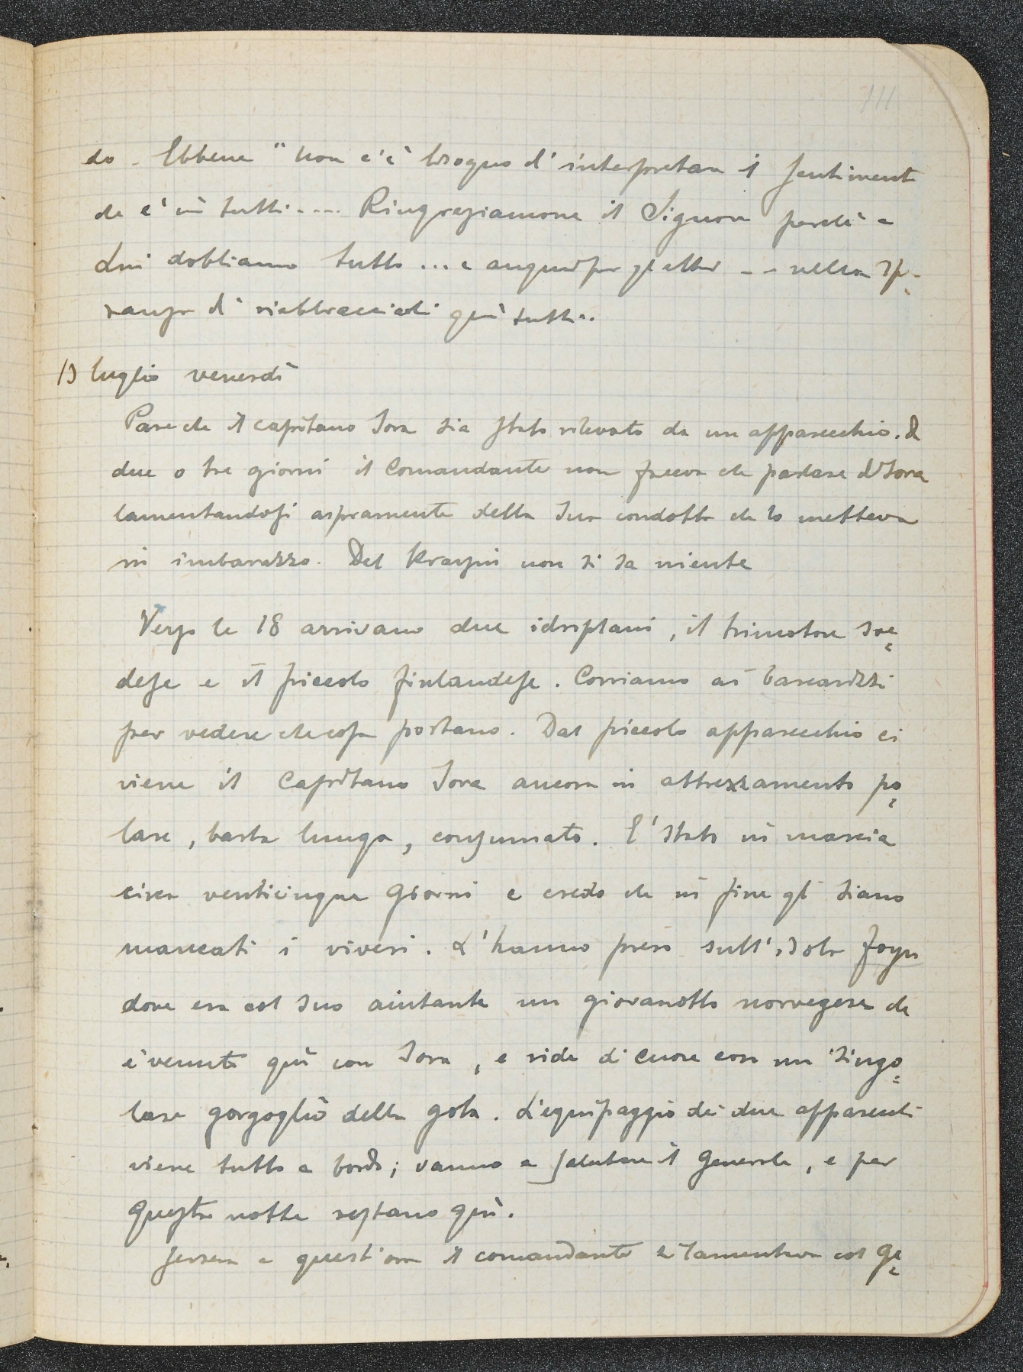 do. Ebbene "non c'è bisogno d'interpretare il sentimento
che è in tutti.... Ringraziamone il Signore perchè a
Lui dobbiamo tutto... e auguri per gli altri -- nella spe-
ranza di riabbracciarli qui tutti..
13 luglio venerdì
Pare che il capitano Sora sia stato rilevato da un apparecchio. Da
due o tre giorni il Comandante non faceva che parlare di Sora
lamentandosi aspramente della sua condotta che lo metteva
in imbarazzo. Del Krassin non si sa niente
Verso le 18 arrivano due idroplani, il trimotore sve=
dese e il piccolo finlandese. Corriamo ai barcarizzi
per vedere che cosa portano. Dal piccolo apparecchio ci
viene il Capitano Sora ancora in attrezzamento po=
lare, barba lunga, consumato. E' stato in marcia
circa venticinque giorni e credo che in fine gli siano
mancati i viveri. L'hanno preso sull'isola Foyn
dove era col suo aiutante un giovanotto norvegese che
è venuto qui con Sora, e ride di cuore con un singo=
lare gorgoglio della gola. L'equipaggio dei due apparecchi
viene tutto a bordo; vanno a salutare il Generale, e per
questa notte restano qui.
Jersera a quest'ora il comandante si lamentava col Ge=